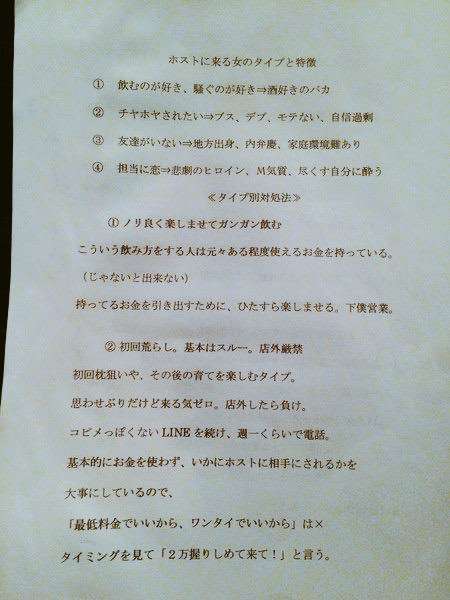 ホストに来る女のタイプと特徴
① 飲むのが好き、騒ぐのが好き⇒酒好きのバカ
② チヤホヤされたい⇒ブス、デブ、モテない、自信過剰
③ 友達がいない⇒地方出身、内弁慶、家庭環境難あり
④ 担当に恋⇒悲劇のヒロイン、M気質、尽くす自分に酔う
≪タイプ別対処法≫
①ノリ良く楽しませてガンガン飲む
こういう飲み方をする人は元々ある程度使えるお金を持っている。
（じゃないと出来ない）
持ってるお金を引き出すために、ひたすら楽しませる。下僕営業。
②初回荒らし。基本はスルー。店外厳禁
初回枕狙いや、その後の育てを楽しむタイプ。
思わせぶりだけど来る気ゼロ。店外したら負け。
コピメっぽくない LINE を続け、週一くらいで電話。
基本的にお金を使わず、いかにホストに相手にされるかを
大事にしているので、
「最低料金でいいから、ワンタイでいいから」は×
タイミングを見て「２万握りしめて来て！」と言う。